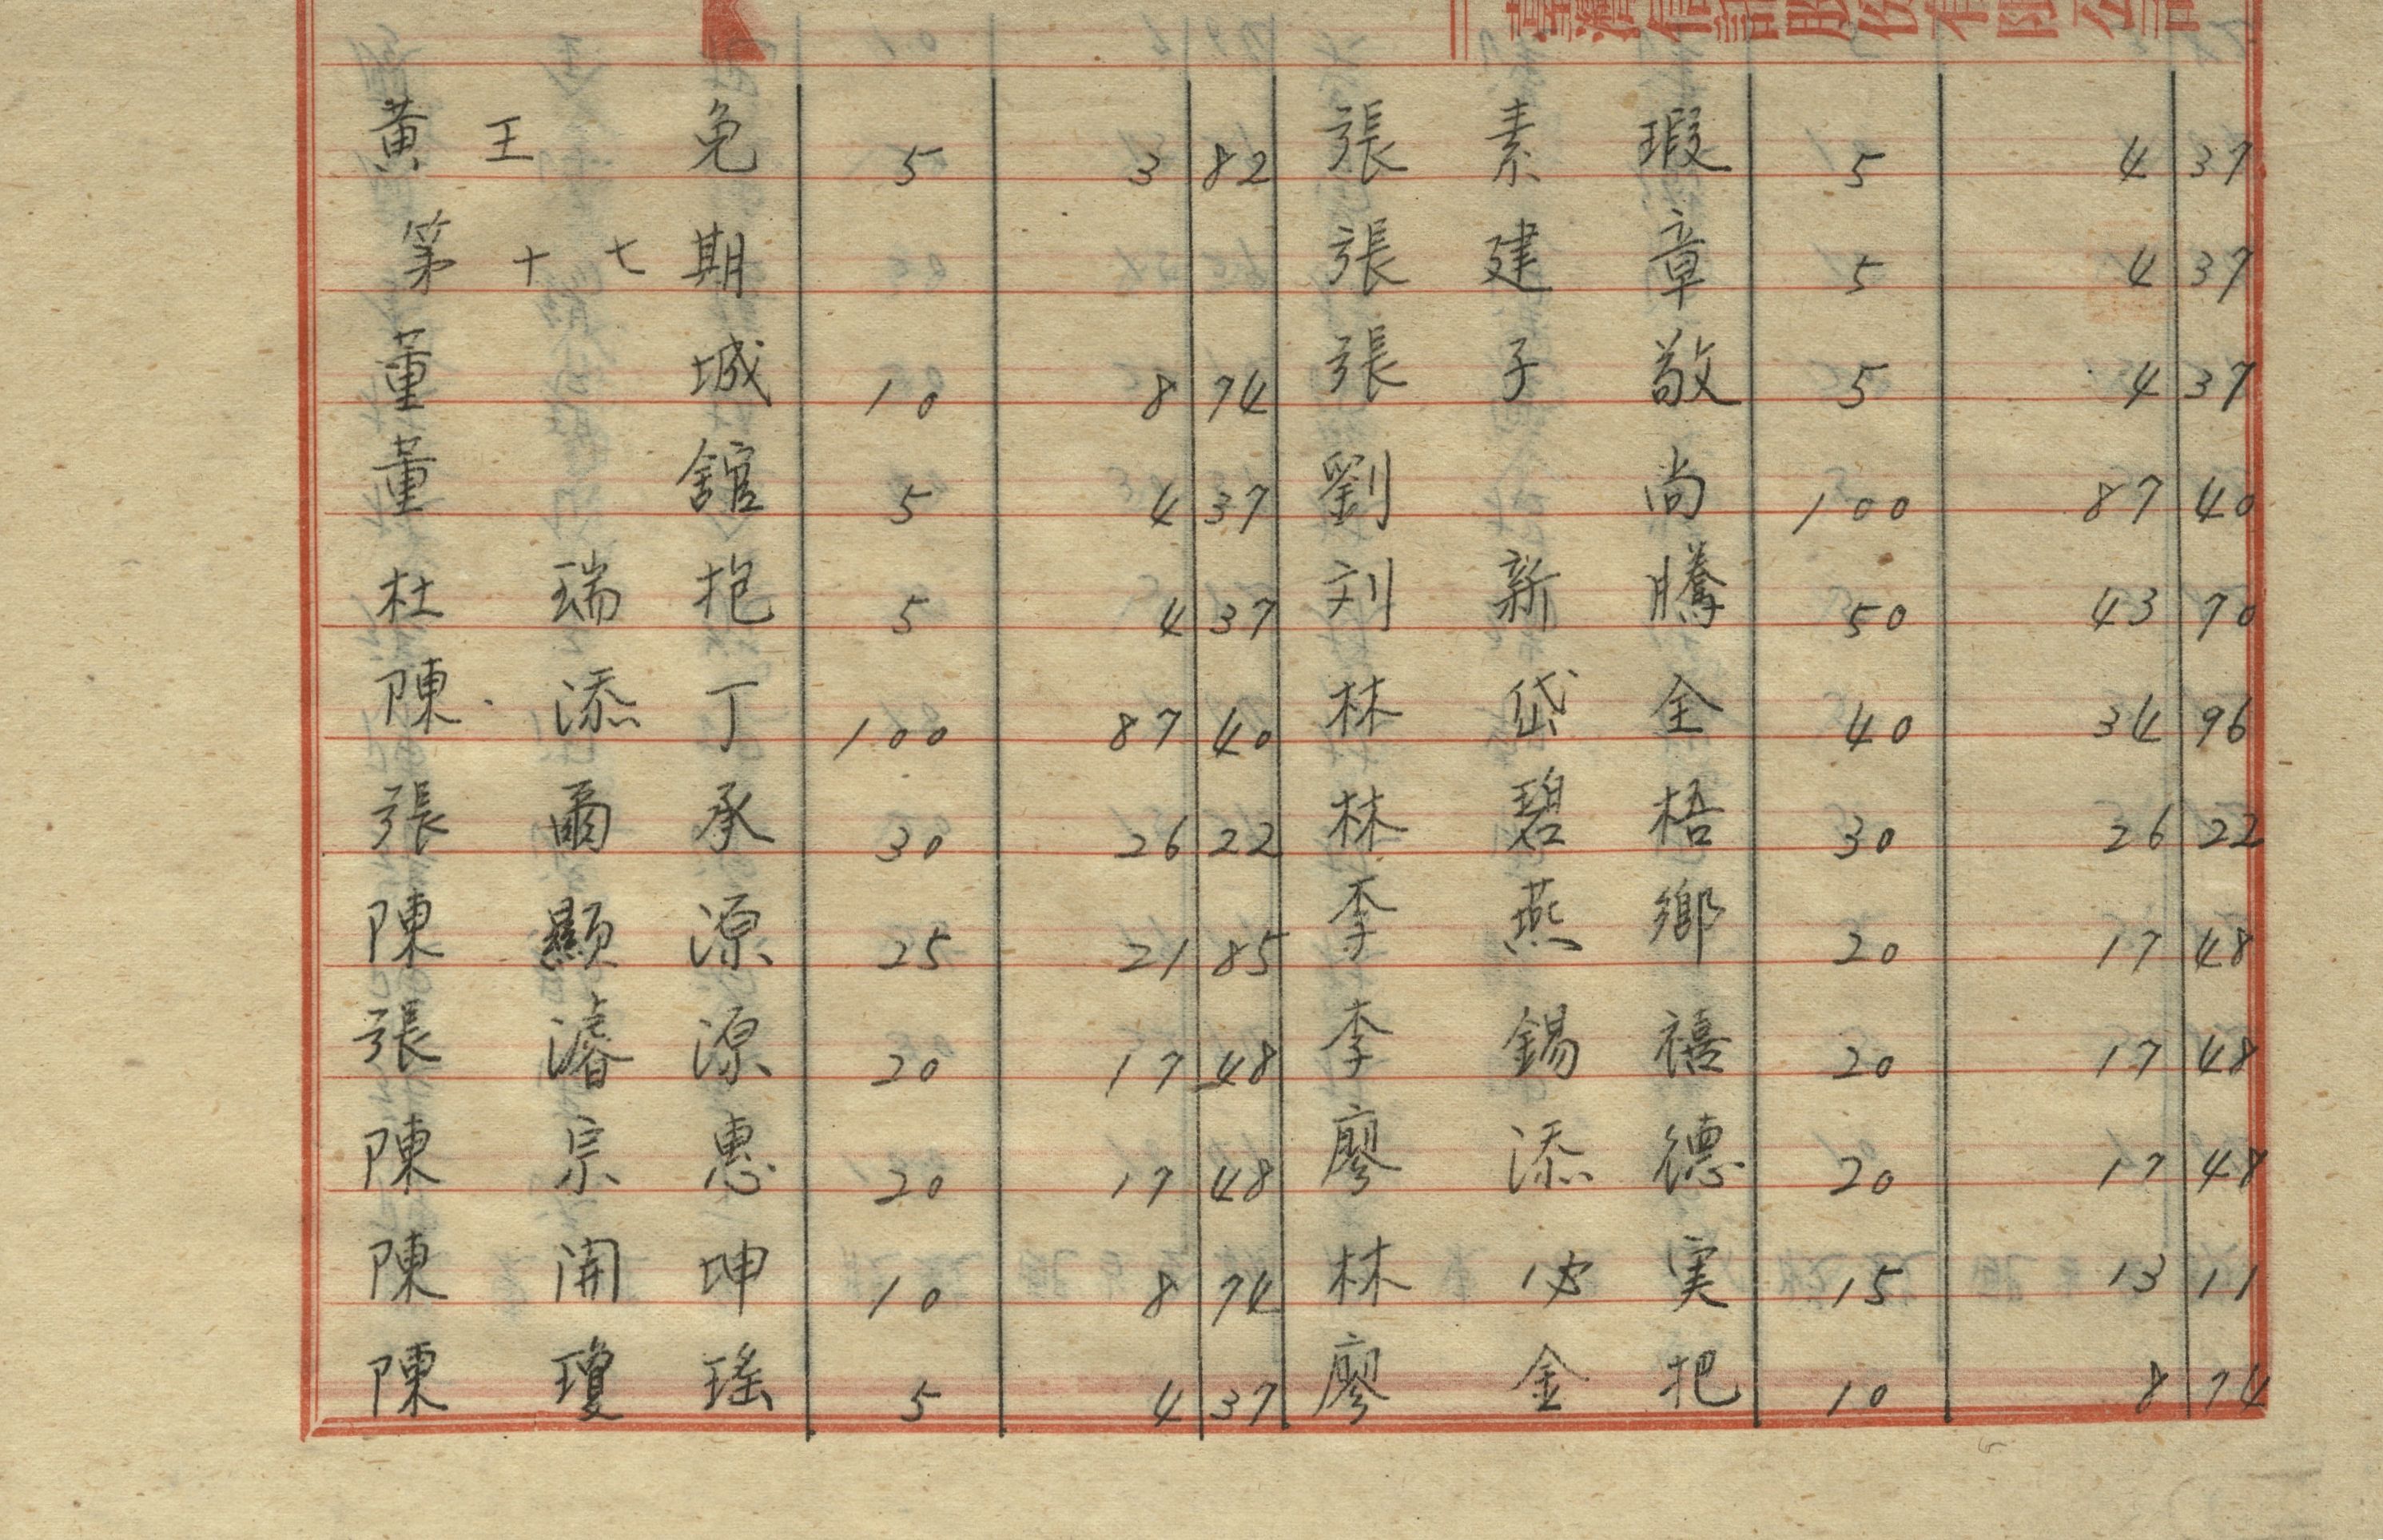 臺灣信託股份有限公司
黃王免 5 3 82
第十七期
董城 10 8 74
董舘 5 4 37
杜瑞抱 5 4 37
陳添丁 100 87 40
張爾承 30 26 22
陳顯源 25 21 85
張濬源 20 17 48
陳宗惠 20 17 48
陳開坤 10 8 74
陳瓊瑤 5 4 37
張素瑕 5 4 37
張建章 5 4 37
張子敬 5 4 37
劉尚 100 87 40
刘新騰 50 43 70
林岱全 40 34 96
林碧梧 30 26 22
李燕鄉 20 17 48
李錫禧 20 17 48
廖添德 20 17 48
林必実 15 13 11
廖金把 10 8 74